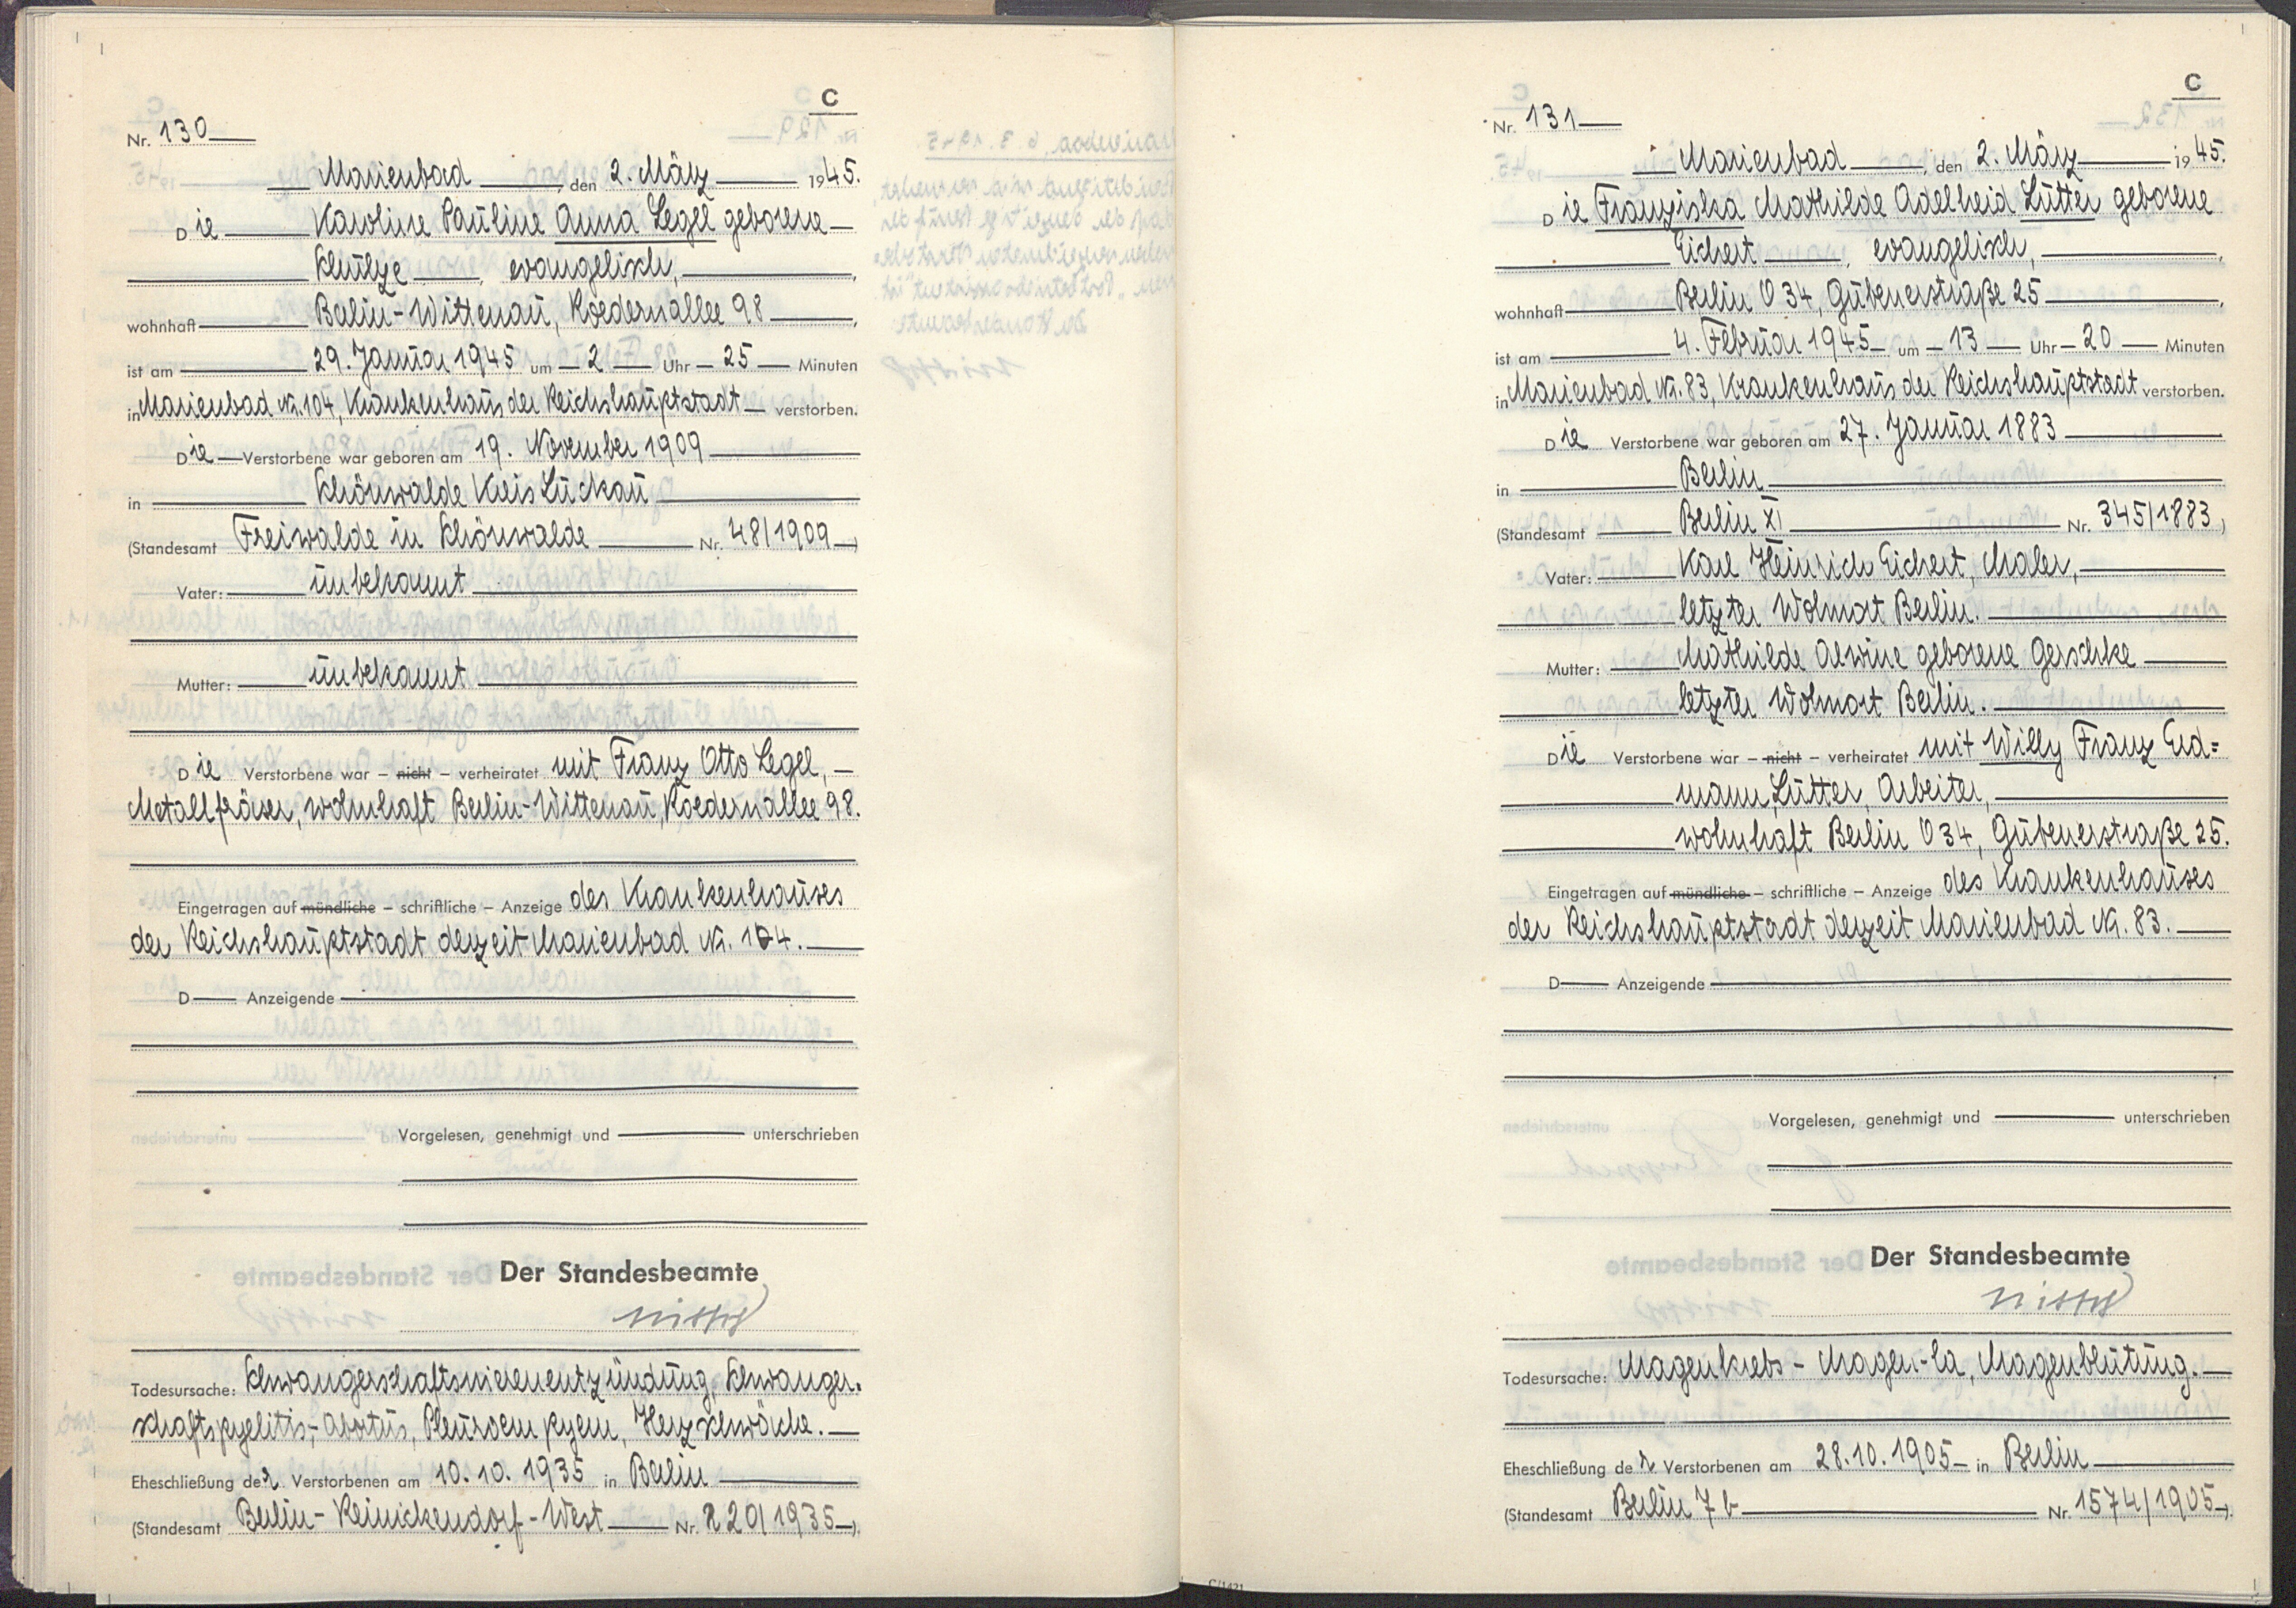 C
Nr. 130
Marienbad, den 2. März 1945.
Die Karoline Pauline Anna Legel geborene
Schulze, evangelisch,
wohnhaft Berlin-Wittenau, Roedernallee 98,
ist am 29. Januar 1945 um 2 Uhr 25 Minuten
in Marienbad Nr. 104, Krankenhaus der Reichshauptstadt verstorben.
Die Verstorbene war geboren am 19. November 1909
in Schönwalde Kreis Luckau
(Standesamt Freiwalde in Schönwalde Nr. 48/1909)
Vater: unbekannt
Mutter: unbekannt
Die Verstorbene war – nicht – verheiratet mit Franz Otto Legel,
Metallfräser, wohnhaft Berlin-Wittenau, Roedernallee 98.
Eingetragen auf mündliche – schriftliche – Anzeige des Krankenhauses
der Reichshauptstadt derzeit Marienbad Nr. 104.
D Anzeigende
Vorgelesen, genehmigt und unterschrieben
Der Standesbeamte
Todesursache: Schwangerschaftsnierenentzündung, Schwanger-
schaftspyelitis, Abortus, Pleuraempyem, Herzschwäche.
Eheschließung der Verstorbenen am 10.10.1935 in Berlin
(Standesamt Berlin-Reinickendorf-West Nr. 220/1935).
C
Nr. 131
Marienbad, den 2. März 1945.
Die Franziska Mathilde Adelheid Lütter geborene
Eichert, evangelisch,
wohnhaft Berlin O 34, Gubenerstraße 25,
ist am 4. Februar 1945 um 13 Uhr 20 Minuten
in Marienbad Nr. 83, Krankenhaus der Reichshauptstadt verstorben.
Die Verstorbene war geboren am 27. Januar 1883
in Berlin
(Standesamt Berlin XI Nr. 345/1883)
Vater: Karl Heinrich Eichert, Maler,
letzter Wohnort Berlin.
Mutter: Mathilde Alwine geborene Gerschke
letzter Wohnort Berlin.
Die Verstorbene war – nicht – verheiratet mit Willy Franz Erd=
mann Lütter, Arbeiter,
wohnhaft Berlin O 34, Gubenerstraße 25.
Eingetragen auf mündliche – schriftliche – Anzeige des Krankenhauses
der Reichshauptstadt derzeit Marienbad Nr. 83.
D Anzeigende
Vorgelesen, genehmigt und unterschrieben
Der Standesbeamte
Todesursache: Magenkrebs - Magen-Ca, Magenblutung.
Eheschließung der Verstorbenen am 28.10.1905 in Berlin
(Standesamt Berlin 7b Nr. 1574/1905).